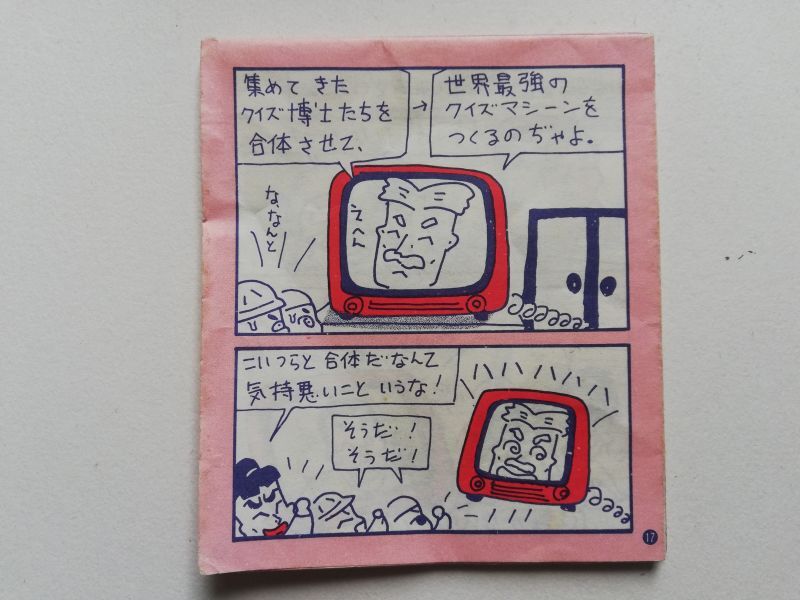 集めてきた
クイズ博士たちを
合体させて、
→
世界最強の
クイズマシーンを
つくるのぢゃよ。
な、なんと
えへん
こいつらと合体だなんて
気持悪いこというな!
そうだ!
そうだ!
17